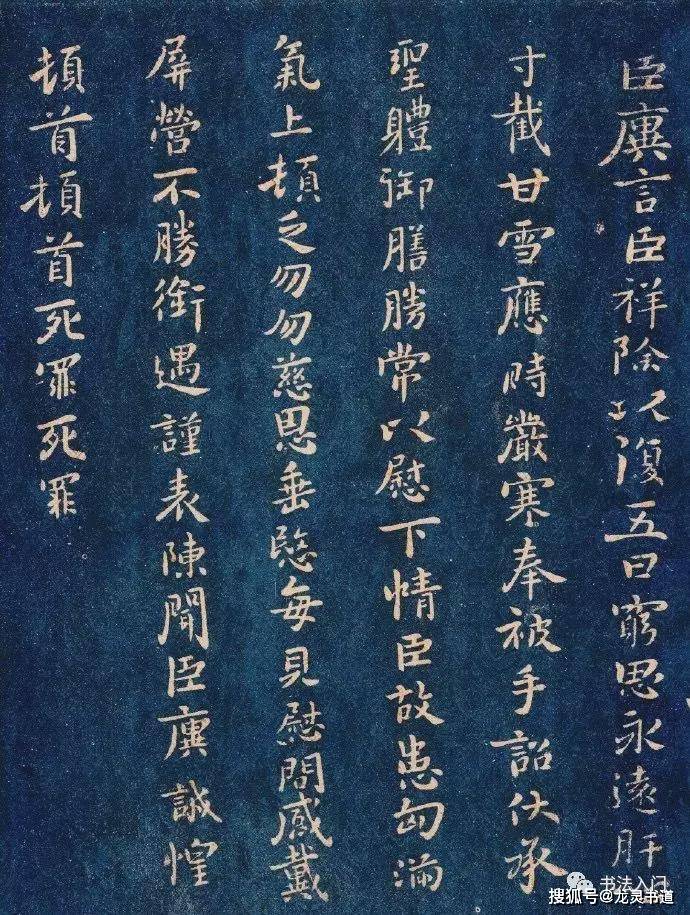 臣廙言臣祥除以復五日窮思永遠肝
寸截甘雪應時嚴寒奉被手詔伏承
聖體御膳勝常以慰下情臣故患匈滿
氣上頓乏勿勿慈恩垂愍每見慰問感戴
屏營不勝銜遇謹表陳聞臣廙誠惶
頓首頓首死罪死罪
书法入门
搜狐号@龙灵书道